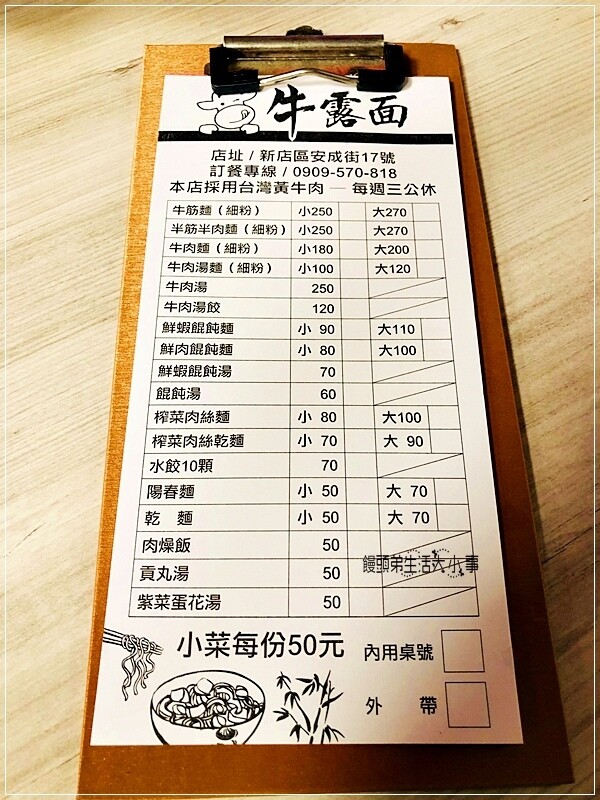 牛露面
店址 / 新店區安成街17號
訂餐專線 / 0909-570-818
本店採用台灣黃牛肉 — 每週三公休
牛筋麵（細粉） 小250 大270
半筋半肉麵（細粉） 小250 大270
牛肉麵（細粉） 小180 大200
牛肉湯麵（細粉） 小100 大120
牛肉湯 250
牛肉湯餃 120
鮮蝦餛飩麵 小 90 大110
鮮肉餛飩麵 小 80 大100
鮮蝦餛飩湯 70
餛飩湯 60
榨菜肉絲麵 小 80 大100
榨菜肉絲乾麵 小 70 大 90
水餃10顆 70
陽春麵 小 50 大 70
乾 麵 小 50 大 70
肉燥飯 50
貢丸湯 50
紫菜蛋花湯 50
饅頭弟生活大小事
小菜每份50元
內用桌號
外 帶